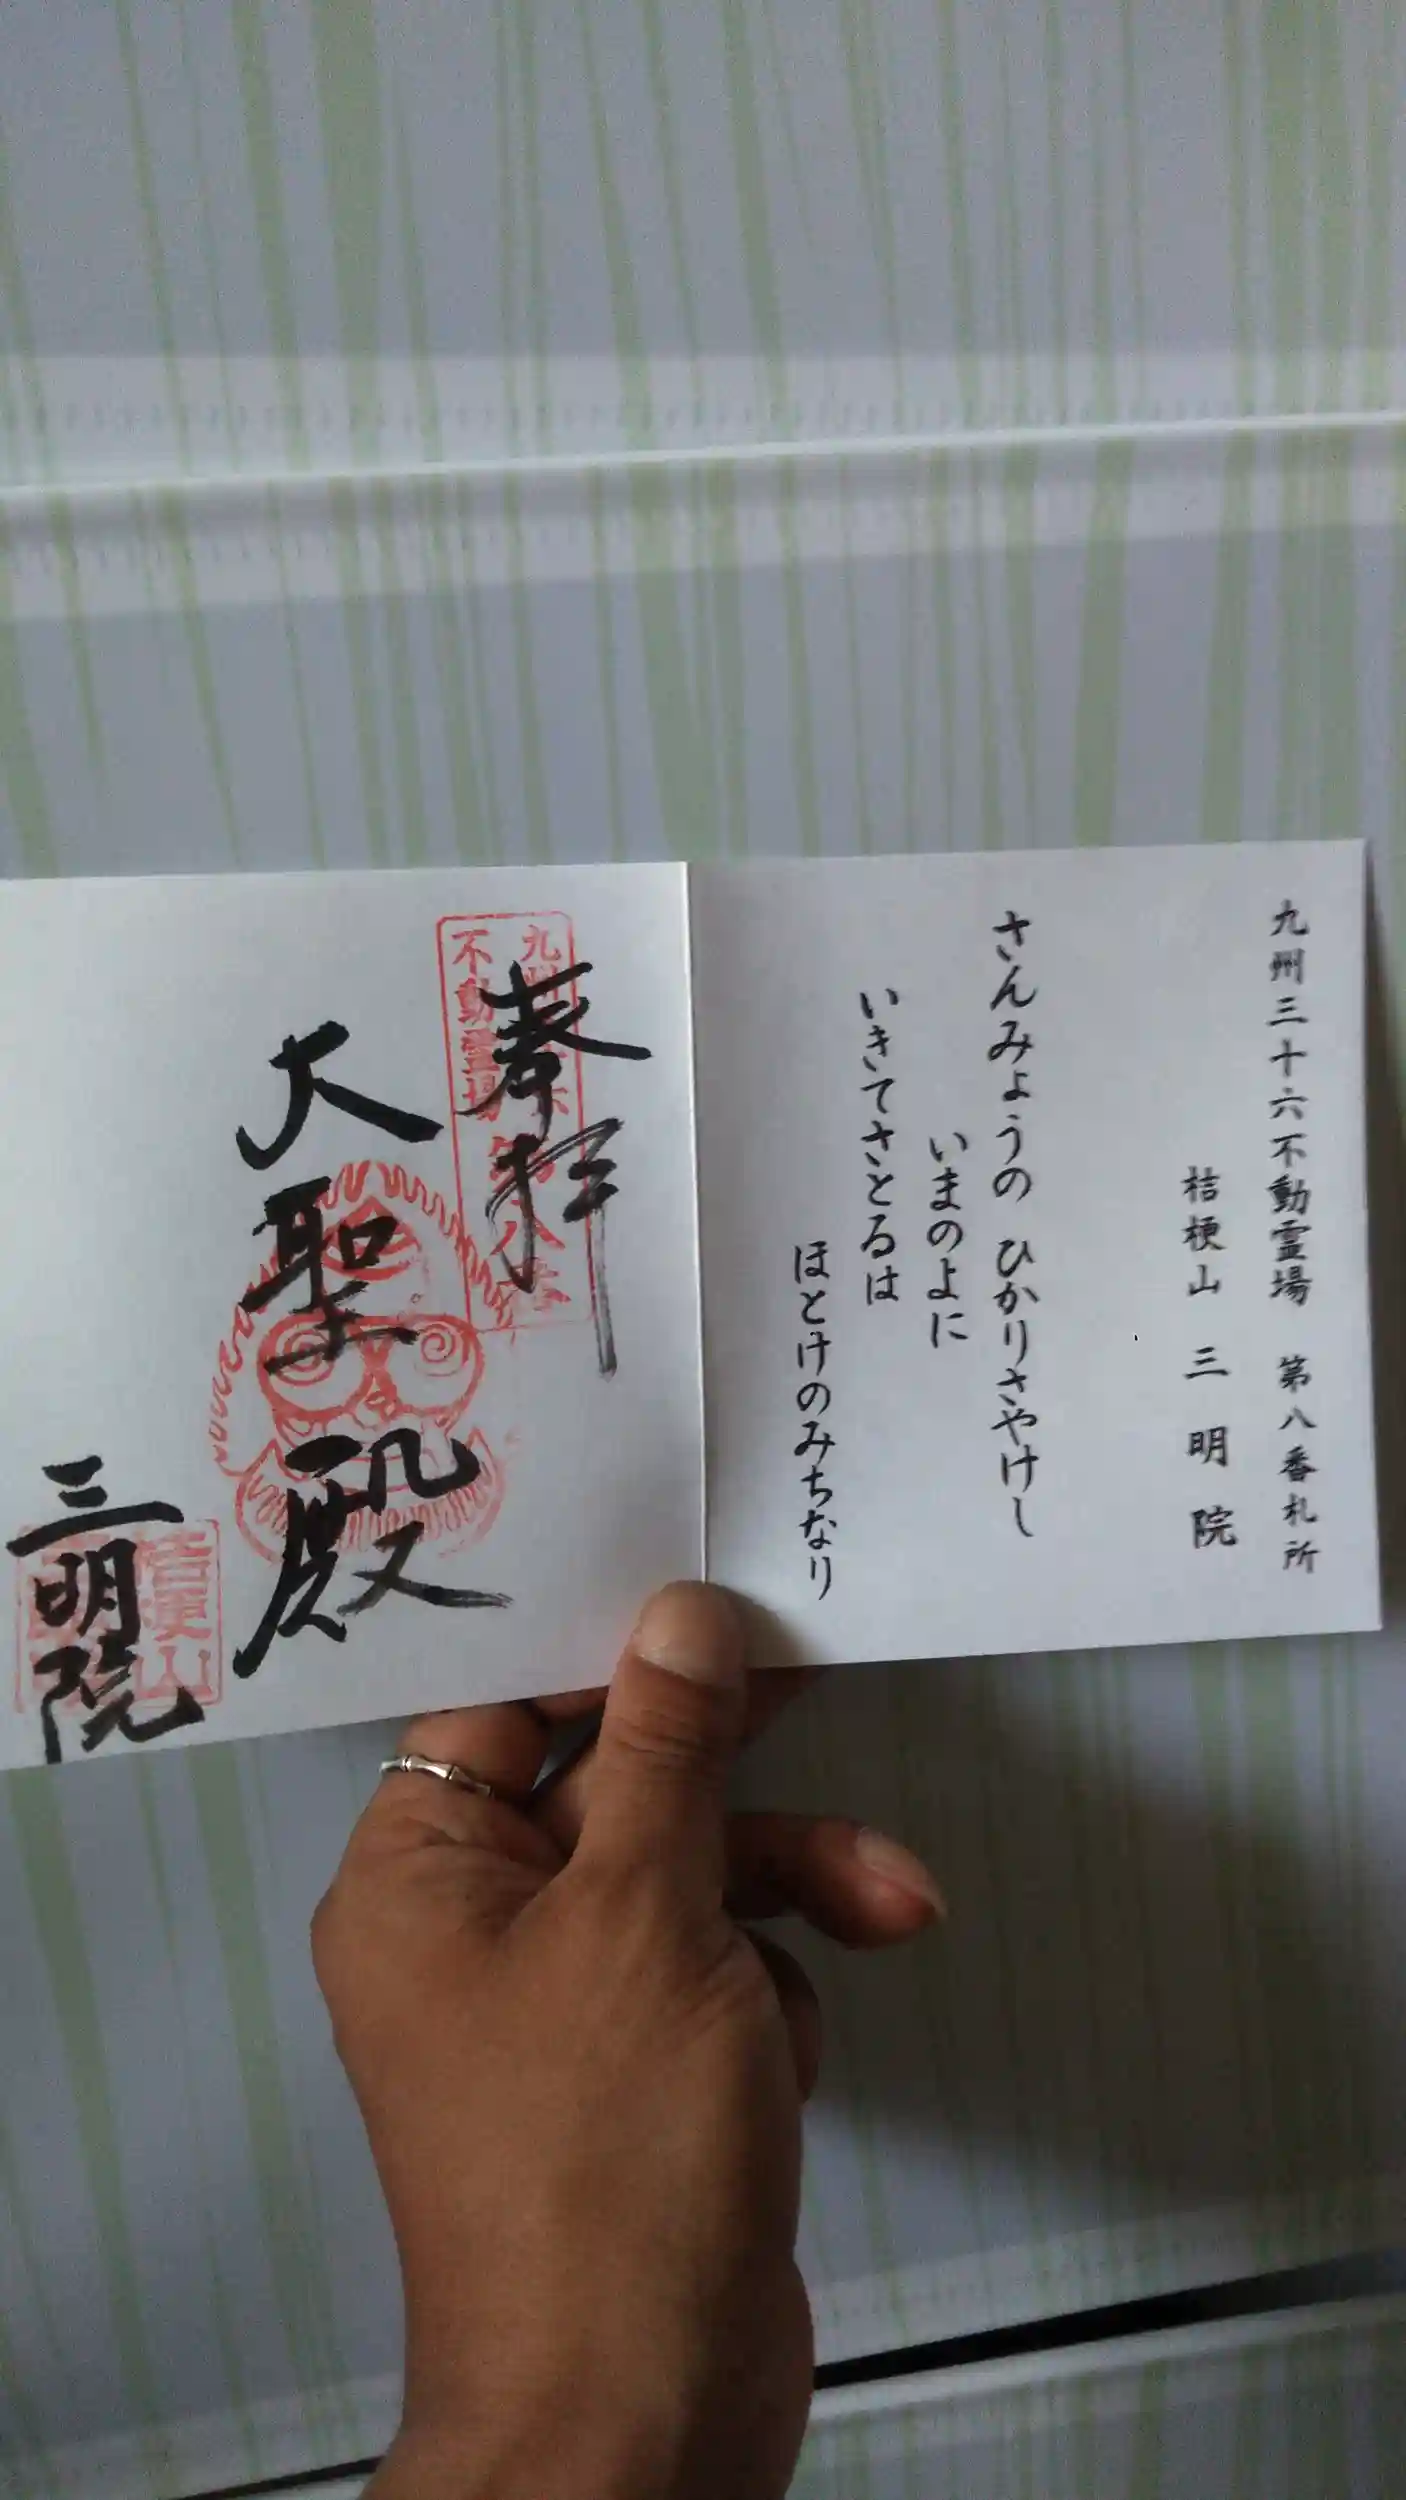 九州三十六不動霊場　第八番札所
桔梗山　三明院
さんみょうの　ひかりさやけし
いまのよに
いきてさとるは
ほとけのみちなり
奉拝
九州三十六
不動霊場
第八番
大聖殿
三明院
桔梗山